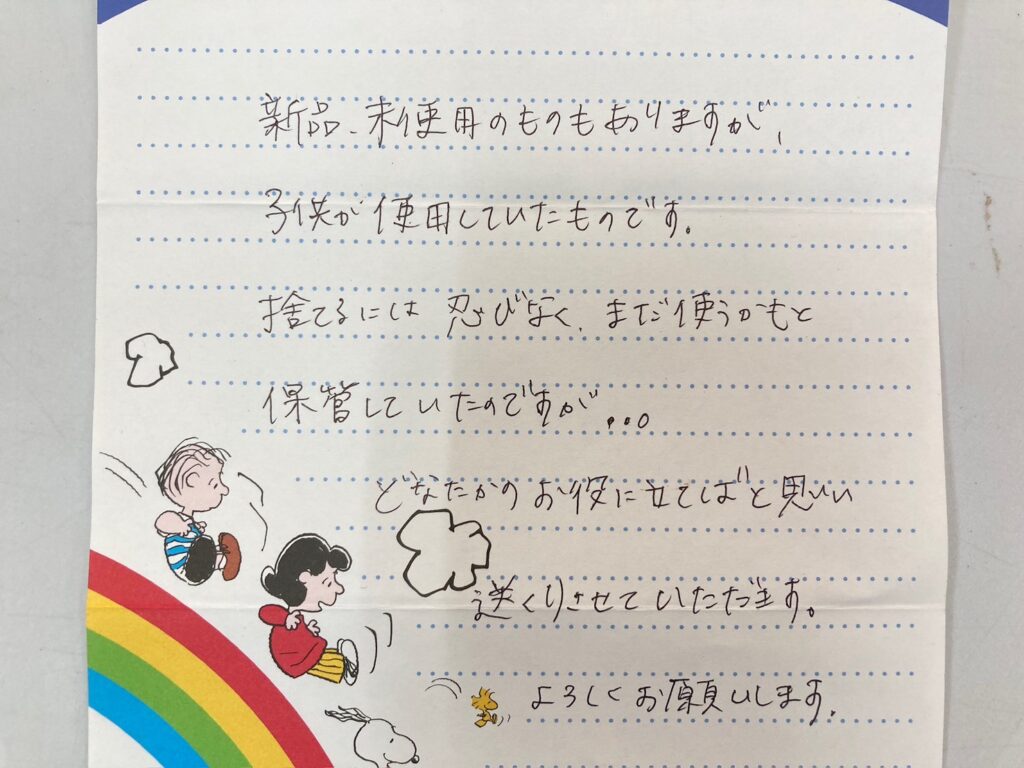 新品、未使用のものもありますが、
子供が使用していたものです。
捨てるには忍びなく、まだ使うかもと
保管していたのですが...。
どなたかのお役に立てばと思い
送くりさせていただきます。
よろしくお願いします。